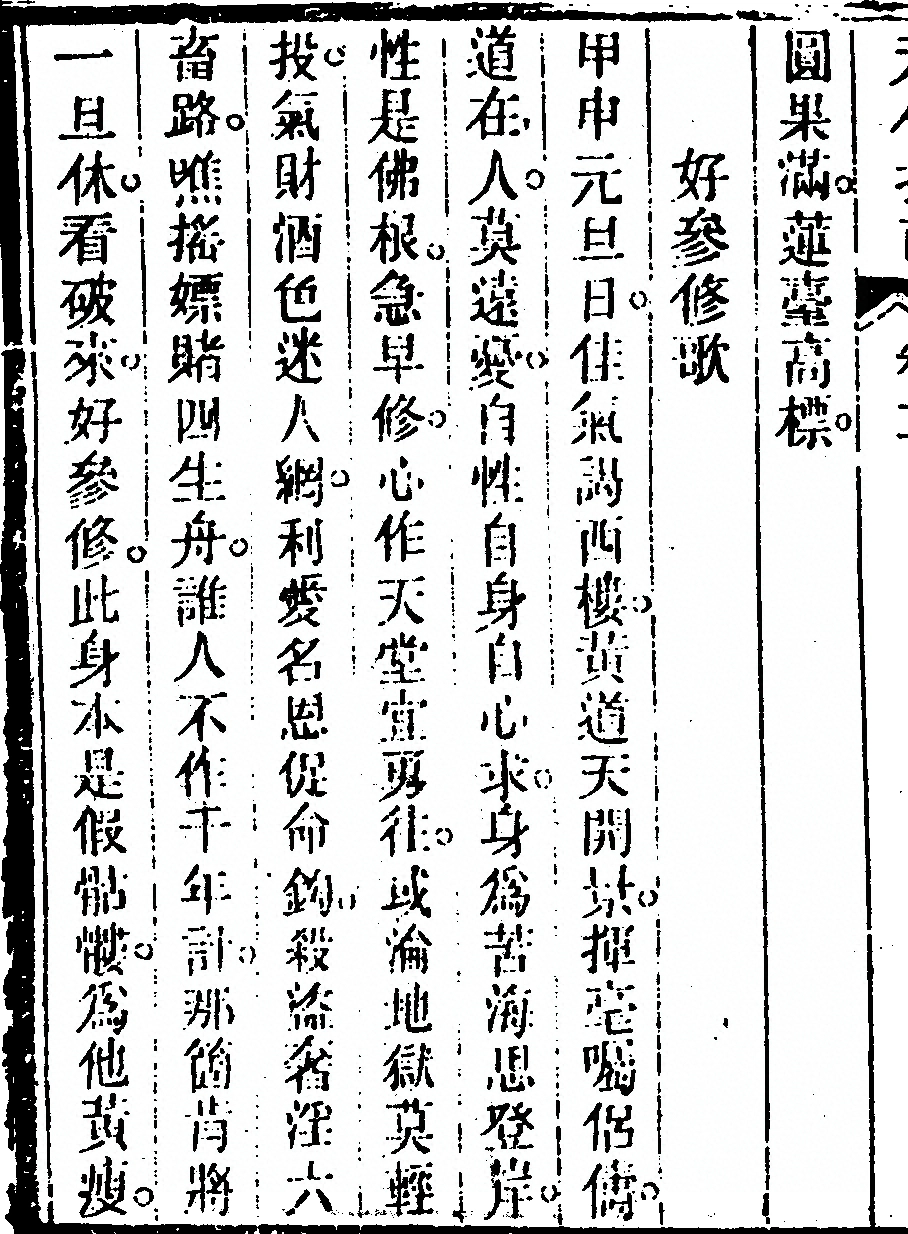 圓果滿。蓮臺高標。
好參修歌
甲申元旦日。佳氣謁西樓。黃道天開景。揮毫囑侶儔。
道在人。莫遠憂。自性自身自心求。身爲苦海思登岸。
性是佛根。急早修。心作天堂宜勇往。或淪地獄莫輕
投。氣財酒色迷人網。利愛名恩促命鉤。殺盜奢淫六
畜路。瞧搖嫖賭四生舟。誰人不作千年計。那個肯將
一旦休。看破來。好參修。此身本是假骷髏。爲他黃瘦。